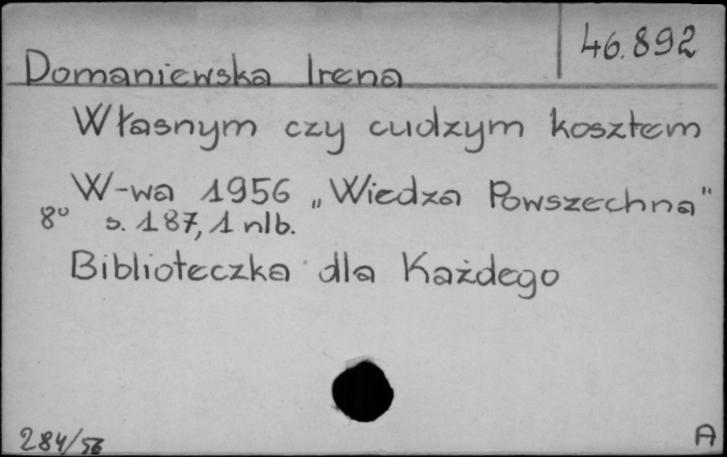 46.892
Domaniewska Irena
Własnym czy cudzym kosztem
W-wa 1956 „Wiedza Powszechna"
8° s. 187, 1 nlb.
Biblioteczka dla Każdego
284/56
A